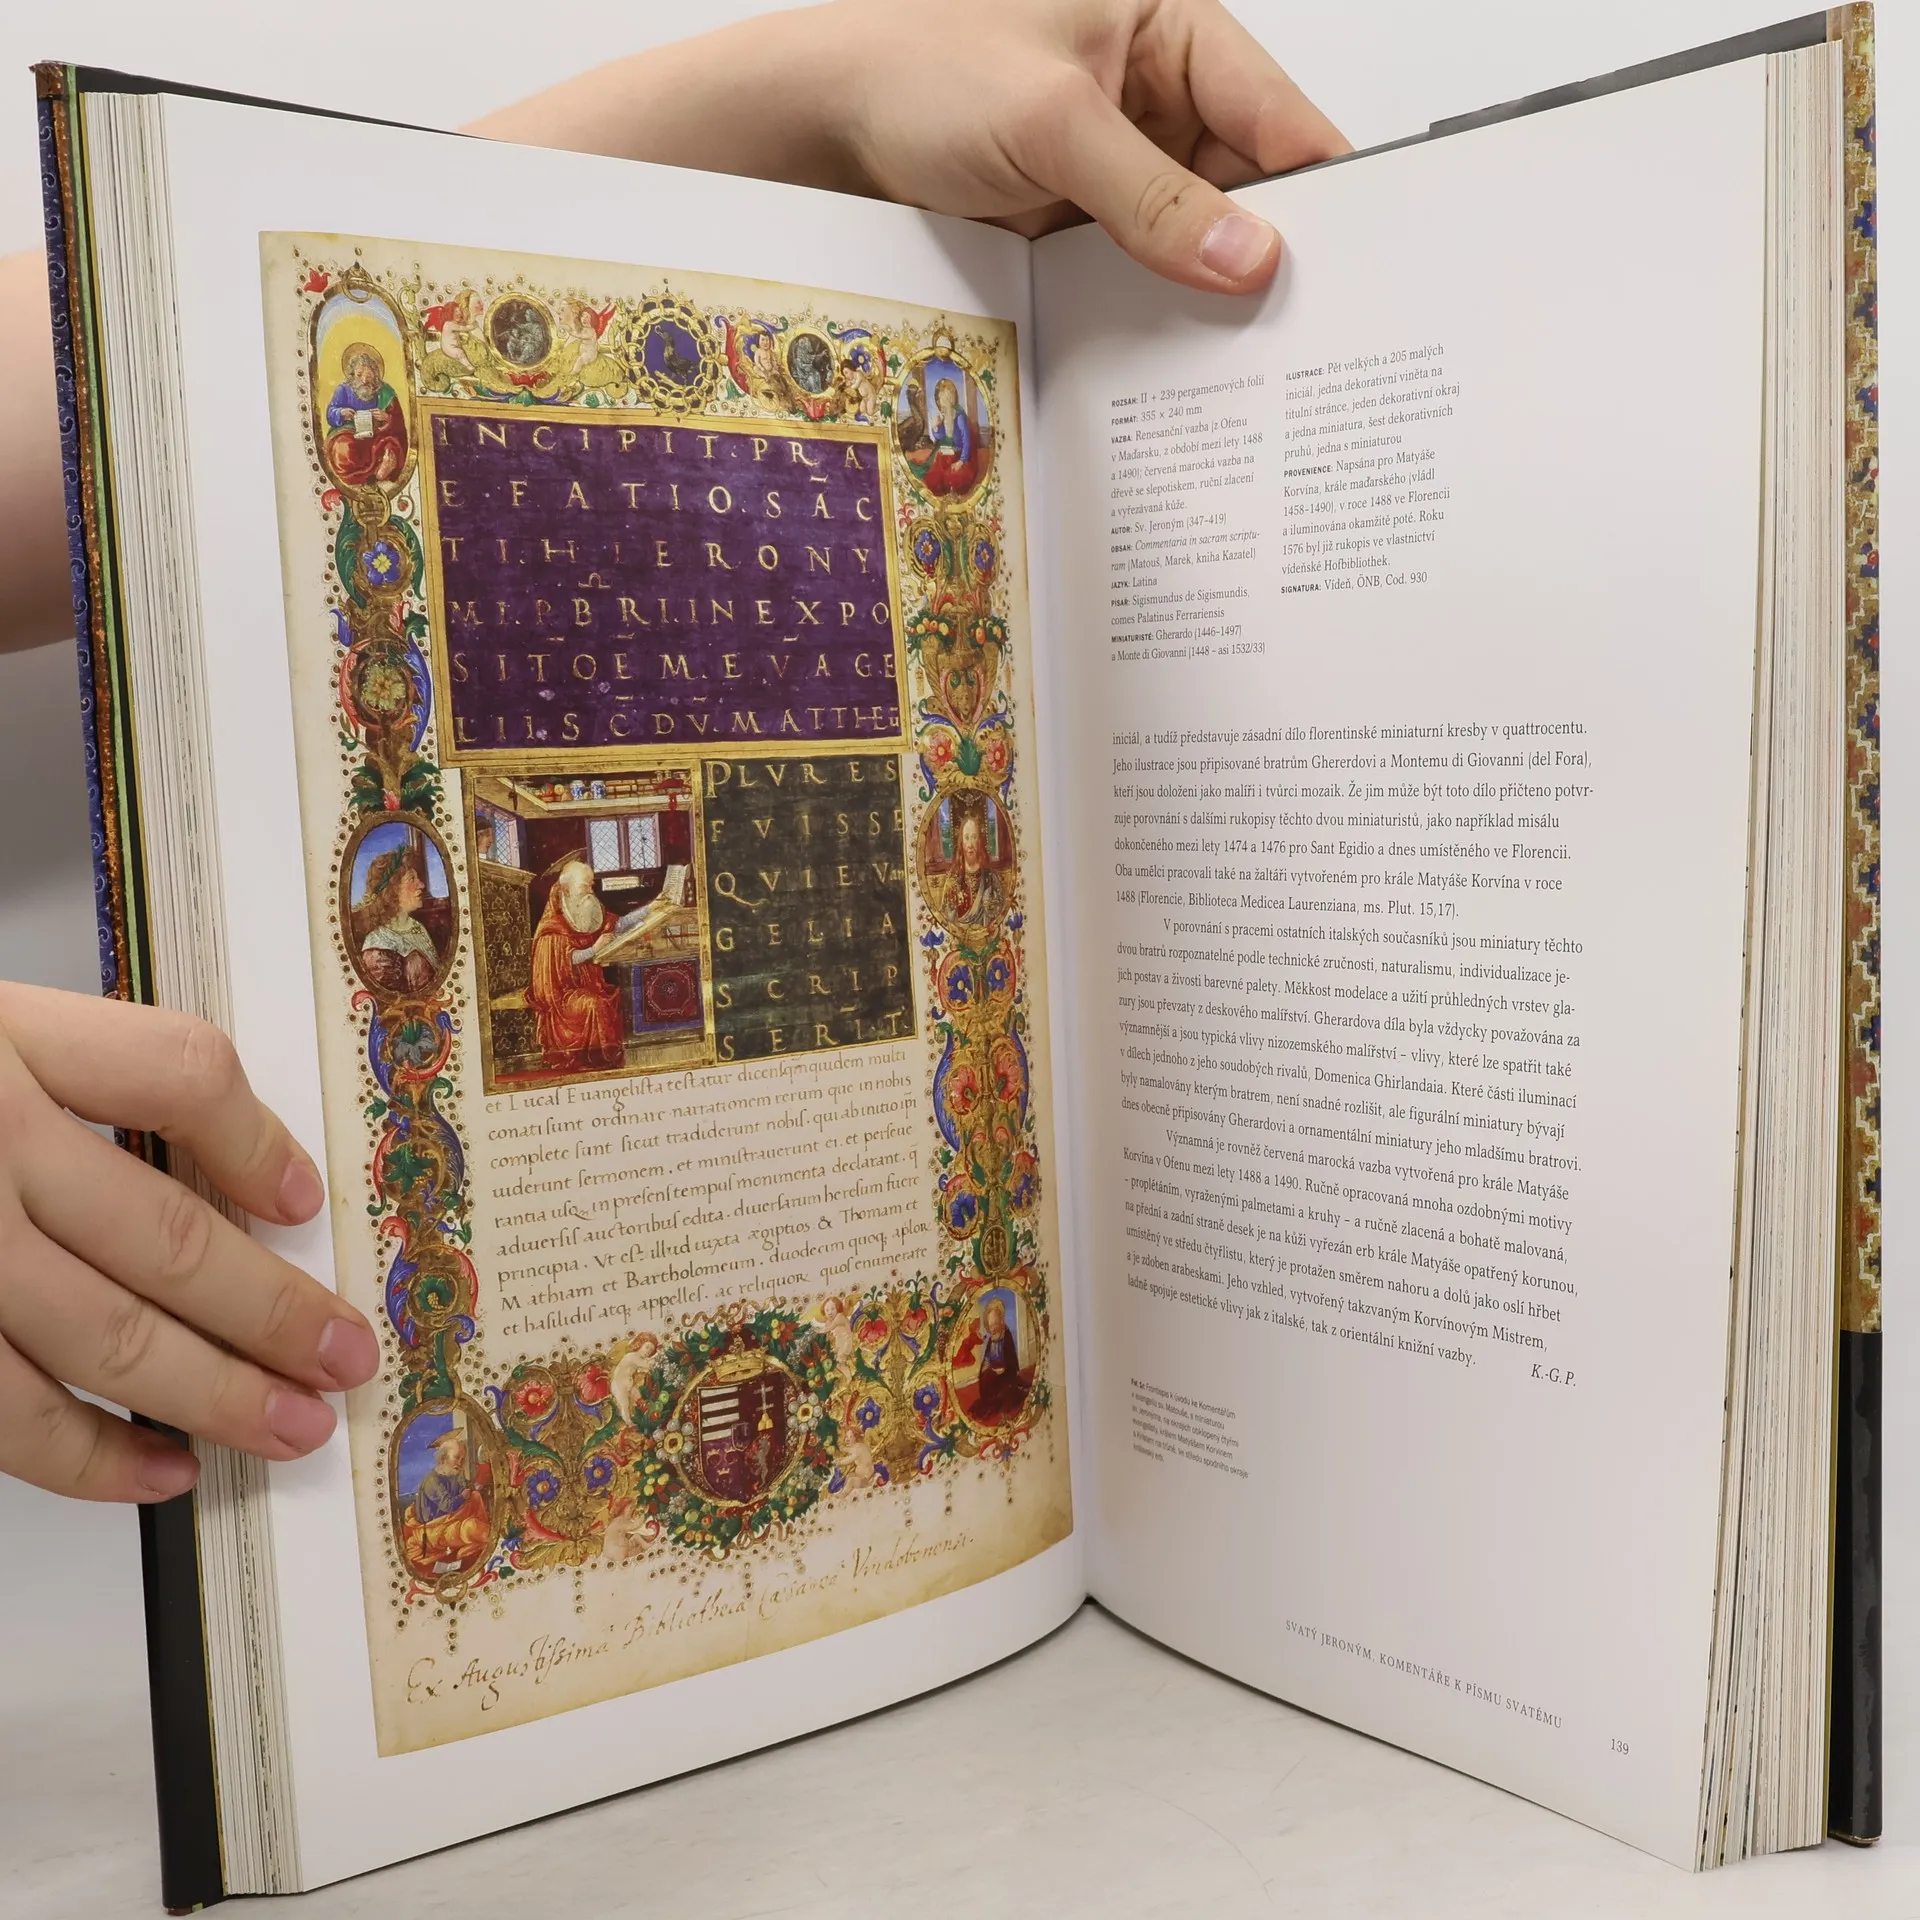 INCIPIT.PRA
E.FATIOSAC
TI.HIERONY
MI.PBRI.INEXPO
SITOEM.EVAGE
LII.S.CDV.MATTHEU
PLVRES
FVISSE
QVIEVan
GELIA
SCRIP
SERIT.
et Lucas Euangelista testatur dicens qm quidem multi
conati sunt ordinare narrationem rerum que in nobis
complete sunt sicut tradiderunt nobis. qui ab initio ipi
uiderunt sermonem. et ministrauerunt ei. et perseue
rantia usq; in presens tempus monumenta declarant. q
a diuersis auctoribus edita. diuersarum heresum fuere
principia. Vt est illud iuxta ægiptios & Thomam et
Mathiam et Bartholomeum. duodecim quoq; aplor
et basilidis atq; appelles. ac reliquor quos enumerate
Ex Augustissima Bibliotheca Cæsarea Vindobonensi.
ROZSAH: II + 239 pergamenových folií
FORMÁT: 355 × 240 mm
VAZBA: Renesanční vazba (z Ofenu
v Maďarsku, z období mezi lety 1488
a 1490); červená marocká vazba na
dřevě se slepotiskem, ruční zlacení
a vyřezávaná kůže.
AUTOR: Sv. Jeroným (347–419)
OBSAH: Commentaria in sacram scriptu-
ram (Matouš, Marek, kniha Kazatel)
JAZYK: Latina
PÍSAŘ: Sigismundus de Sigismundis,
comes Palatinus Ferrariensis
MINIATURISTÉ: Gherardo (1446–1497)
a Monte di Giovanni (1448 – asi 1532/33)
ILUSTRACE: Pět velkých a 205 malých
iniciál, jedna dekorativní viněta na
titulní stránce, jeden dekorativní okraj
a jedna miniatura, šest dekorativních
pruhů, jedna s miniaturou
PROVENIENCE: Napsána pro Matyáše
Korvína, krále maďarského (vládl
1458–1490), v roce 1488 ve Florencii
a iluminována okamžitě poté. Roku
1576 byl již rukopis ve vlastnictví
vídeňské Hofbibliothek.
SIGNATURA: Vídeň, ÖNB, Cod. 930
iniciál, a tudíž představuje zásadní dílo florentinské miniaturní kresby v quattrocentu.
Jeho ilustrace jsou připisované bratrům Ghererdovi a Montemu di Giovanni (del Fora),
kteří jsou doloženi jako malíři i tvůrci mozaik. Že jim může být toto dílo přičteno potvr-
zuje porovnání s dalšími rukopisy těchto dvou miniaturistů, jako například misálu
dokončeného mezi lety 1474 a 1476 pro Sant Egidio a dnes umístěného ve Florencii.
Oba umělci pracovali také na žaltáři vytvořeném pro krále Matyáše Korvína v roce
1488 (Florencie, Biblioteca Medicea Laurenziana, ms. Plut. 15,17).
V porovnání s pracemi ostatních italských současníků jsou miniatury těchto
dvou bratrů rozpoznatelné podle technické zručnosti, naturalismu, individualizace je-
jich postav a živosti barevné palety. Měkkost modelace a užití průhledných vrstev gla-
zury jsou převzaty z deskového malířství. Gherardova díla byla vždycky považována za
významnější a jsou typická vlivy nizozemského malířství – vlivy, které lze spatřit také
v dílech jednoho z jeho soudobých rivalů, Domenica Ghirlandaia. Které části iluminací
byly namalovány kterým bratrem, není snadné rozlišit, ale figurální miniatury bývají
dnes obecně připisovány Gherardovi a ornamentální miniatury jeho mladšímu bratrovi.
Významná je rovněž červená marocká vazba vytvořená pro krále Matyáše
Korvína v Ofenu mezi lety 1488 a 1490. Ručně opracovaná mnoha ozdobnými motivy
– proplétáním, vyraženými palmetami a kruhy – a ručně zlacená a bohatě malovaná,
na přední a zadní straně desek je na kůži vyřezán erb krále Matyáše opatřený korunou,
umístěný ve středu čtyřlistu, který je protažen směrem nahoru a dolů jako oslí hřbet
a je zdoben arabeskami. Jeho vzhled, vytvořený takzvaným Korvínovým Mistrem,
ladně spojuje estetické vlivy jak z italské, tak z orientální knižní vazby.
K.-G. P.
Fol. 1r Frontispis k úvodu ke Komentářům
k evangeliu sv. Matouše, s miniaturou
sv. Jeronýma, na okrajích obklopený čtyřmi
evangelisty, králem Matyášem Korvínem
a Kristem na trůně, ve středu spodního okraje
královský erb.
SVATÝ JERONÝM, KOMENTÁŘE K PÍSMU SVATÉMU
139